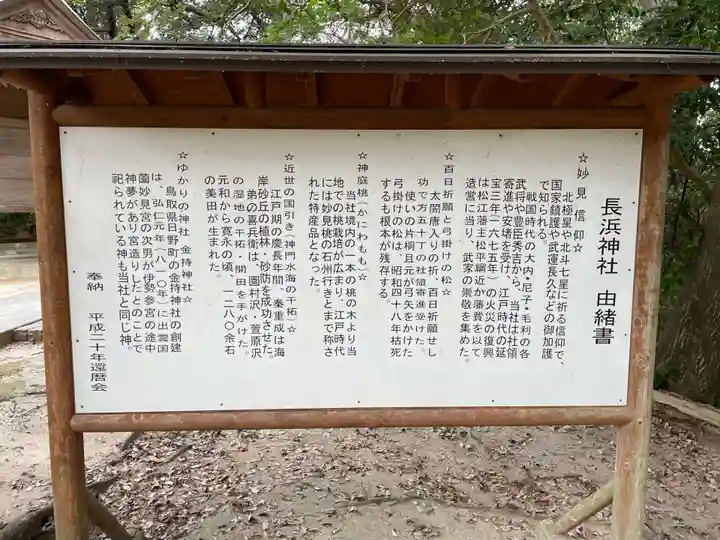 長浜神社 由緒書
☆妙見信仰☆
北極星や北斗七星に祈る信仰で、
国家鎮護や武運長久などの御加護
で知られる。
戦国時代の大内・尼子・毛利の各
武将や豊臣秀吉から、当社は社領
寄進や安堵を受け、江戸時代の延
宝三年(一六七五年)の火災の復興
は松江藩主松平綱近が藩費を以て
造営に当り、武家の崇敬を集めた。
☆百日祈願と弓掛けの松☆
太閤唐入りの折、百日祈願せし
功で方五十石の社領寄進受けた。
使いの片桐且元が弓矢をかけた
弓掛けの松は、昭和四十八年枯死
するも根本が残存する。
☆神庭桃(かにわもも)☆
当社境内の二本の桃の木より当
地での桃栽培が広まり、江戸時代
には妙見桃の石州行きとまで称さ
れた特産品となった。
☆近世の国引き(神門水海の干拓)☆
江戸期の慶長年間、秦重成は海
岸砂丘の植林・砂防を成功させた。
弟の春日喜兵衛は、園村沢・萱原沢
の湿地の干拓・開田を手がけた。
元和から寛永の頃、一二八〇余石
の美田が生まれた。
☆ゆかりの神社 金持神社☆
鳥取県日野町の金持神社の創建
は、弘仁元年(八一〇年)に出雲国
薗妙見宮の次男が伊勢参宮の途中
神夢があり宮造りしたとのことで
祀られている神も当社と同じ神。
奉納 平成二十年還暦会